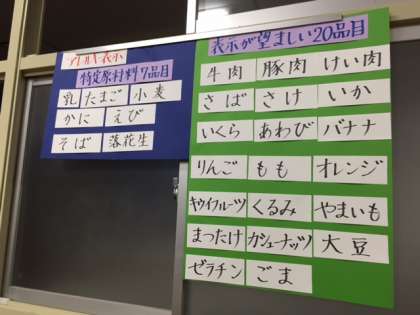 アレルギー表示
特定原材料7品目
乳 たまご 小麦
かに えび
そば 落花生
表示が望ましい20品目
牛肉 豚肉 けい肉
さば さけ いか
いくら あわび バナナ
りんご もも オレンジ
キウイフルーツ くるみ やまいも
まつたけ カシューナッツ 大豆
ゼラチン ごま